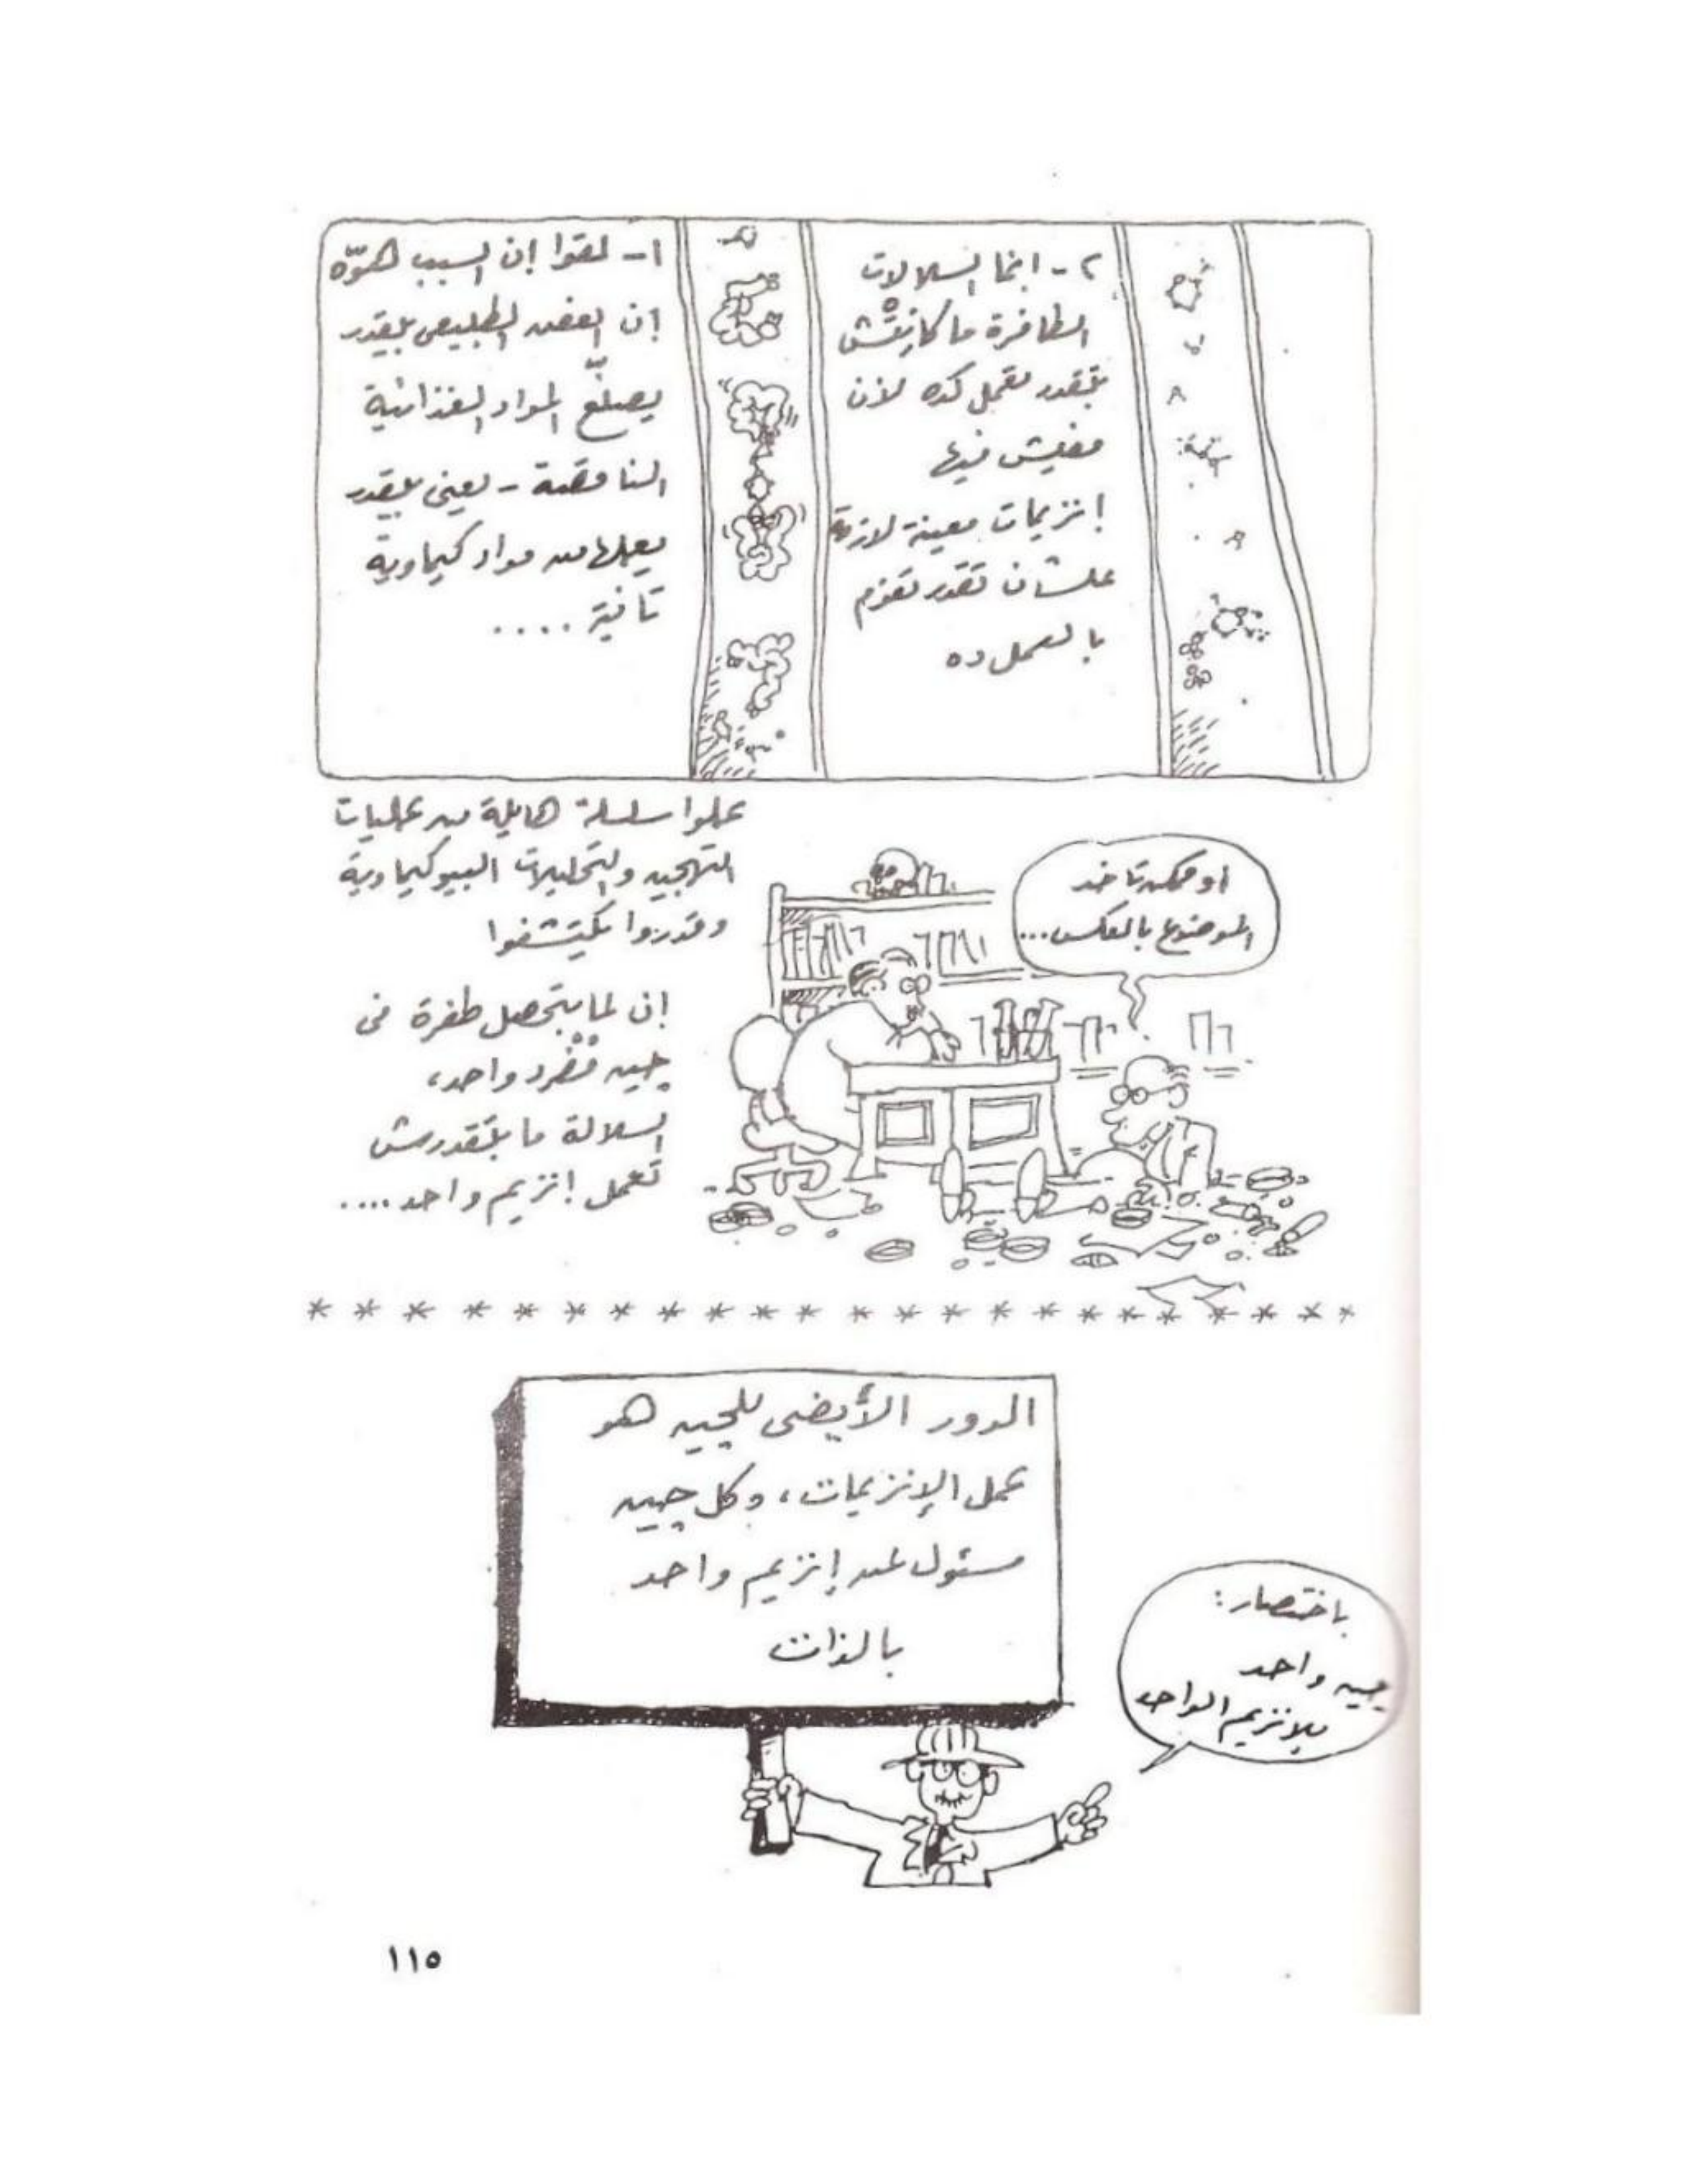 ١- لقوا إن السبب هوّه
إن العفن الطبيعى بيقدر
يصنّع المواد الغذائية
الناقصة - يعنى بيقدر
يعملها من مواد كيماوية
تانية ....
٢- انما السلالات
الطافرة ما كانِتْش
بتقدر تعمل كده لأن
مفيش فيها
إنزيمات معينة لازمة
علشان تقدر تقوم
بالعمل ده
عملوا سلسلة هايلة من عمليات
التهجين والتحليلات البيوكيماوية
وقدروا يكتشفوا
إن لما بتحصل طفرة فى
چين مُفْرد واحد،
السلالة ما بتقدرش
تعمل إنزيم واحد ....
أو ممكن تاخد
الموضوع بالعكس ...
* * * * * * * * * * * * * * * * * * * * * * *
الدور الأيضى للچين هو
عمل الإنزيمات، وكل چين
مسئول عن إنزيم واحد
بالذات
باختصار:
چين واحد
للإنزيم الواحد
١١٥